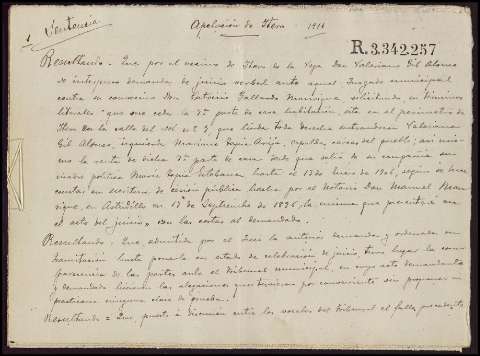 Sentencia
Apelación de Itero - 1916
R.3.342.257
Resultando - Que por el vecino de Itero de la Vega Don Valeriano Gil Alonso
se interpuso demanda de juicio verbal ante aquel Juzgado municipal
contra su convecino Don Gallardo Manrique solicitando en términos
literales "que me ceda la 7ª parte de casa habitación, sita en el perímetro de
Itero en la calle del Sol nº 7, que linda toda derecha entrando Valeriano
Gil Alonso, izquierda Mariano, espalda, cuevas del pueblo; así mismo
la renta de dicha 7ª parte de casa desde que salió de su compañía
política María hasta el 13 de Enero de 1906, según se hace
constar en escritura de cesión pública hecha por el Notario Don Manuel
en Astudillo en 17 de Septiembre de 1896, la misma que presentaré en
el acto del juicio" con las costas al demandado.
Resultando - Que admitida por el Juez la anterior demanda y ordenada su
tramitación hasta ponerla en estado de celebración de juicio, tuvo lugar la comparecencia
de las partes ante el Tribunal municipal, en cuyo acto demandante
y demandado hicieron las alegaciones que tuvieron por conveniente sin proponer ni
practicar ninguna clase de prueba.
Resultando = Que, puesto a discusión entre los vocales del tribunal el fallo